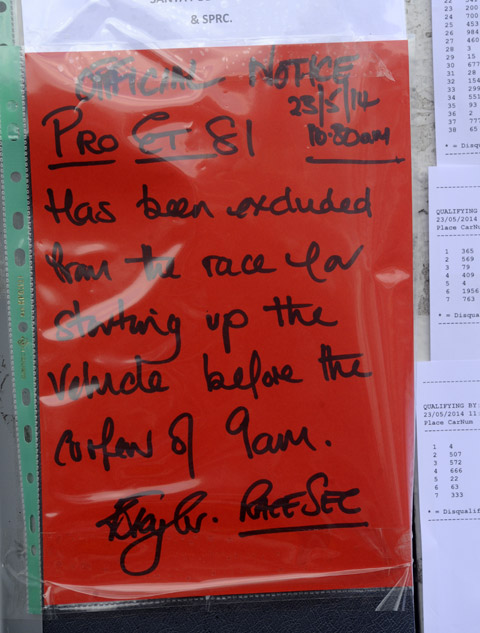 & SPRC.
OFFICIAL NOTICE
23/5/14
PRO ET 81 10.30am
Has been excluded
from the race for
starting up the
vehicle before the
curfew of 9am.
RACE SEC
23 200
24 700
25 453
26 984
27 460
28 3
29 15
30 677
31 28
32 154
33 299
34 551
35 93
36 2
37 777
38 65
* = Disqu
QUALIFYING
23/05/2014
Place CarNu
1 365
2 569
3 79
4 409
5 4
6 1956
7 763
* = Disqua
QUALIFYING BY
23/05/2014 11:
Place CarNum
1 4
2 507
3 572
4 666
5 22
6 63
7 333
* = Disqualif